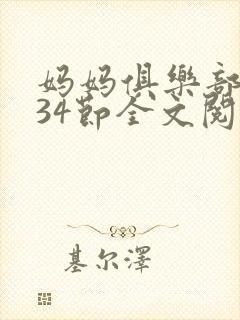 妈妈俱樂部
34節全文閱
基尔澤